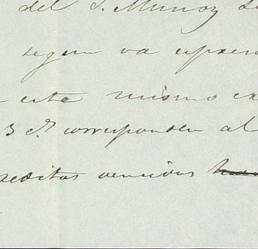 del S. Muñoz de
segun va espres
este mismo
3 d.s corresponden al
creditos vencidos